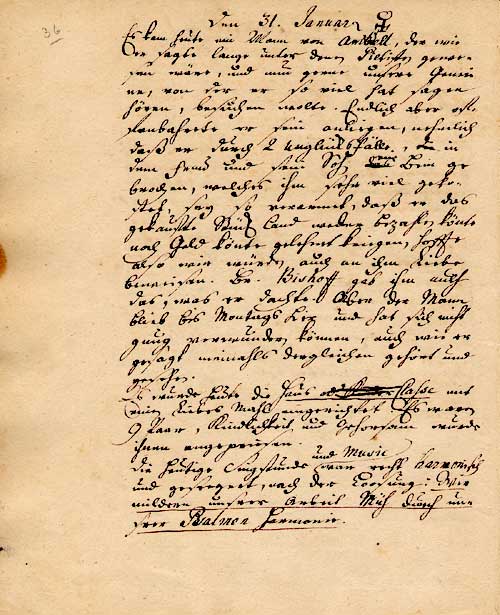 36
Den 31. Januar.
Es kam heute ein Mann von der wie
er sagte lange unter denen Pietisten gewe-
sen wäre, und nun gerne unsere Gemei-
ne, von der er so viel hat sagen
hören, besuchen wolte. Endlich aber of-
fenbahrete er sein anliegen, nehmlich
daß er durch 2 Unglücksfälle, in
dem und sein Sohn Bein ge
brochen, welches ihm sehr viel geko-
stet, sey so verarmet, daß er das
gekaufte Stück Land weder bezahlen könte
noch Geld könte gelehnet kriegen, hoffte
also wir würden auch an ihm Liebe
beweisen. Br. Bishoff gab ihm auf
das, was er dachte. Aber der Mann
blieb bis Montags hier und hat sich nicht
gnug verwundern können, auch wie er
gesagt niemahls dergleichen gehört und
gesehen.
Es wurde heute die Haus Classe mit
einem Liebes Mahl angerichtet. Es waren
9 Paar, Kindlichkeit und Gehorsam wurde
ihnen angepriesen.
und Music
Die heutige Singstunde war recht harmonisch
und gesegnet, nach der Loosung: Wir
unsrer Arbeit Müh durch un-
srer Psalmen Harmonie.